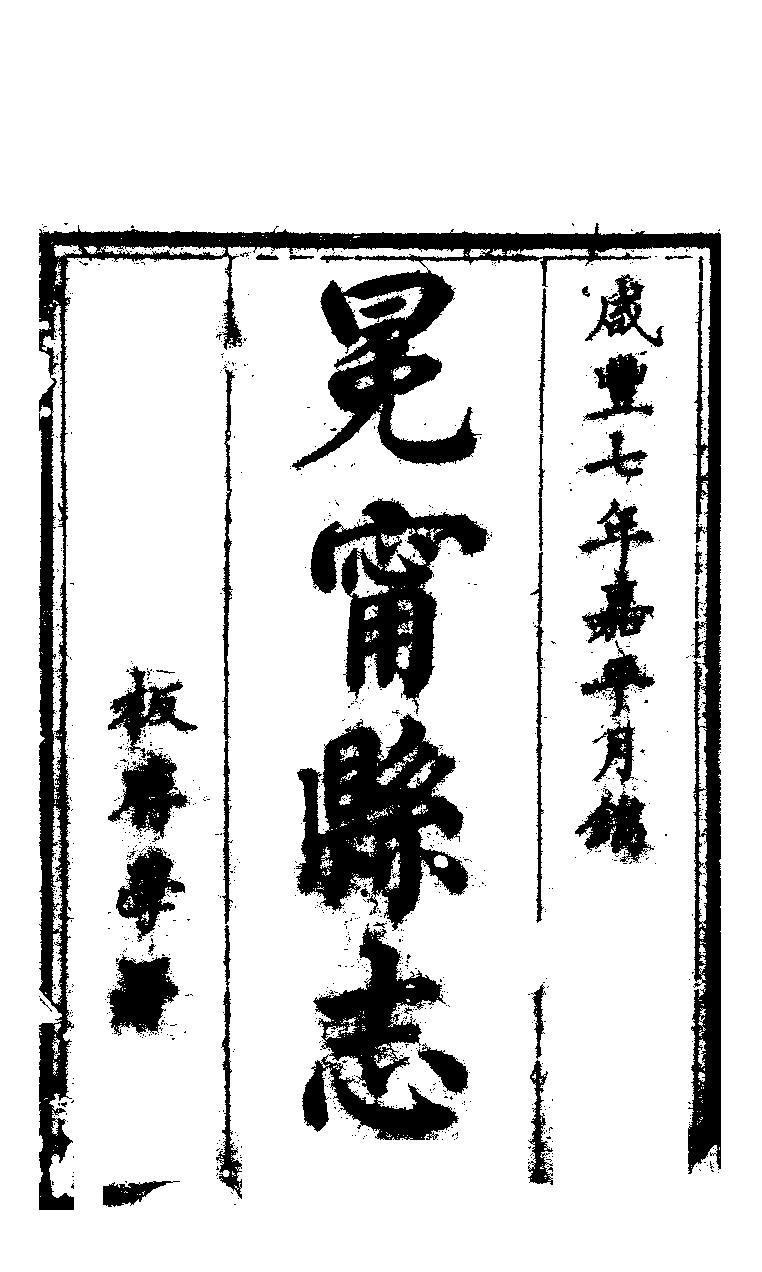 咸豐七年嘉平月鐫
冕甯縣志
板存學署